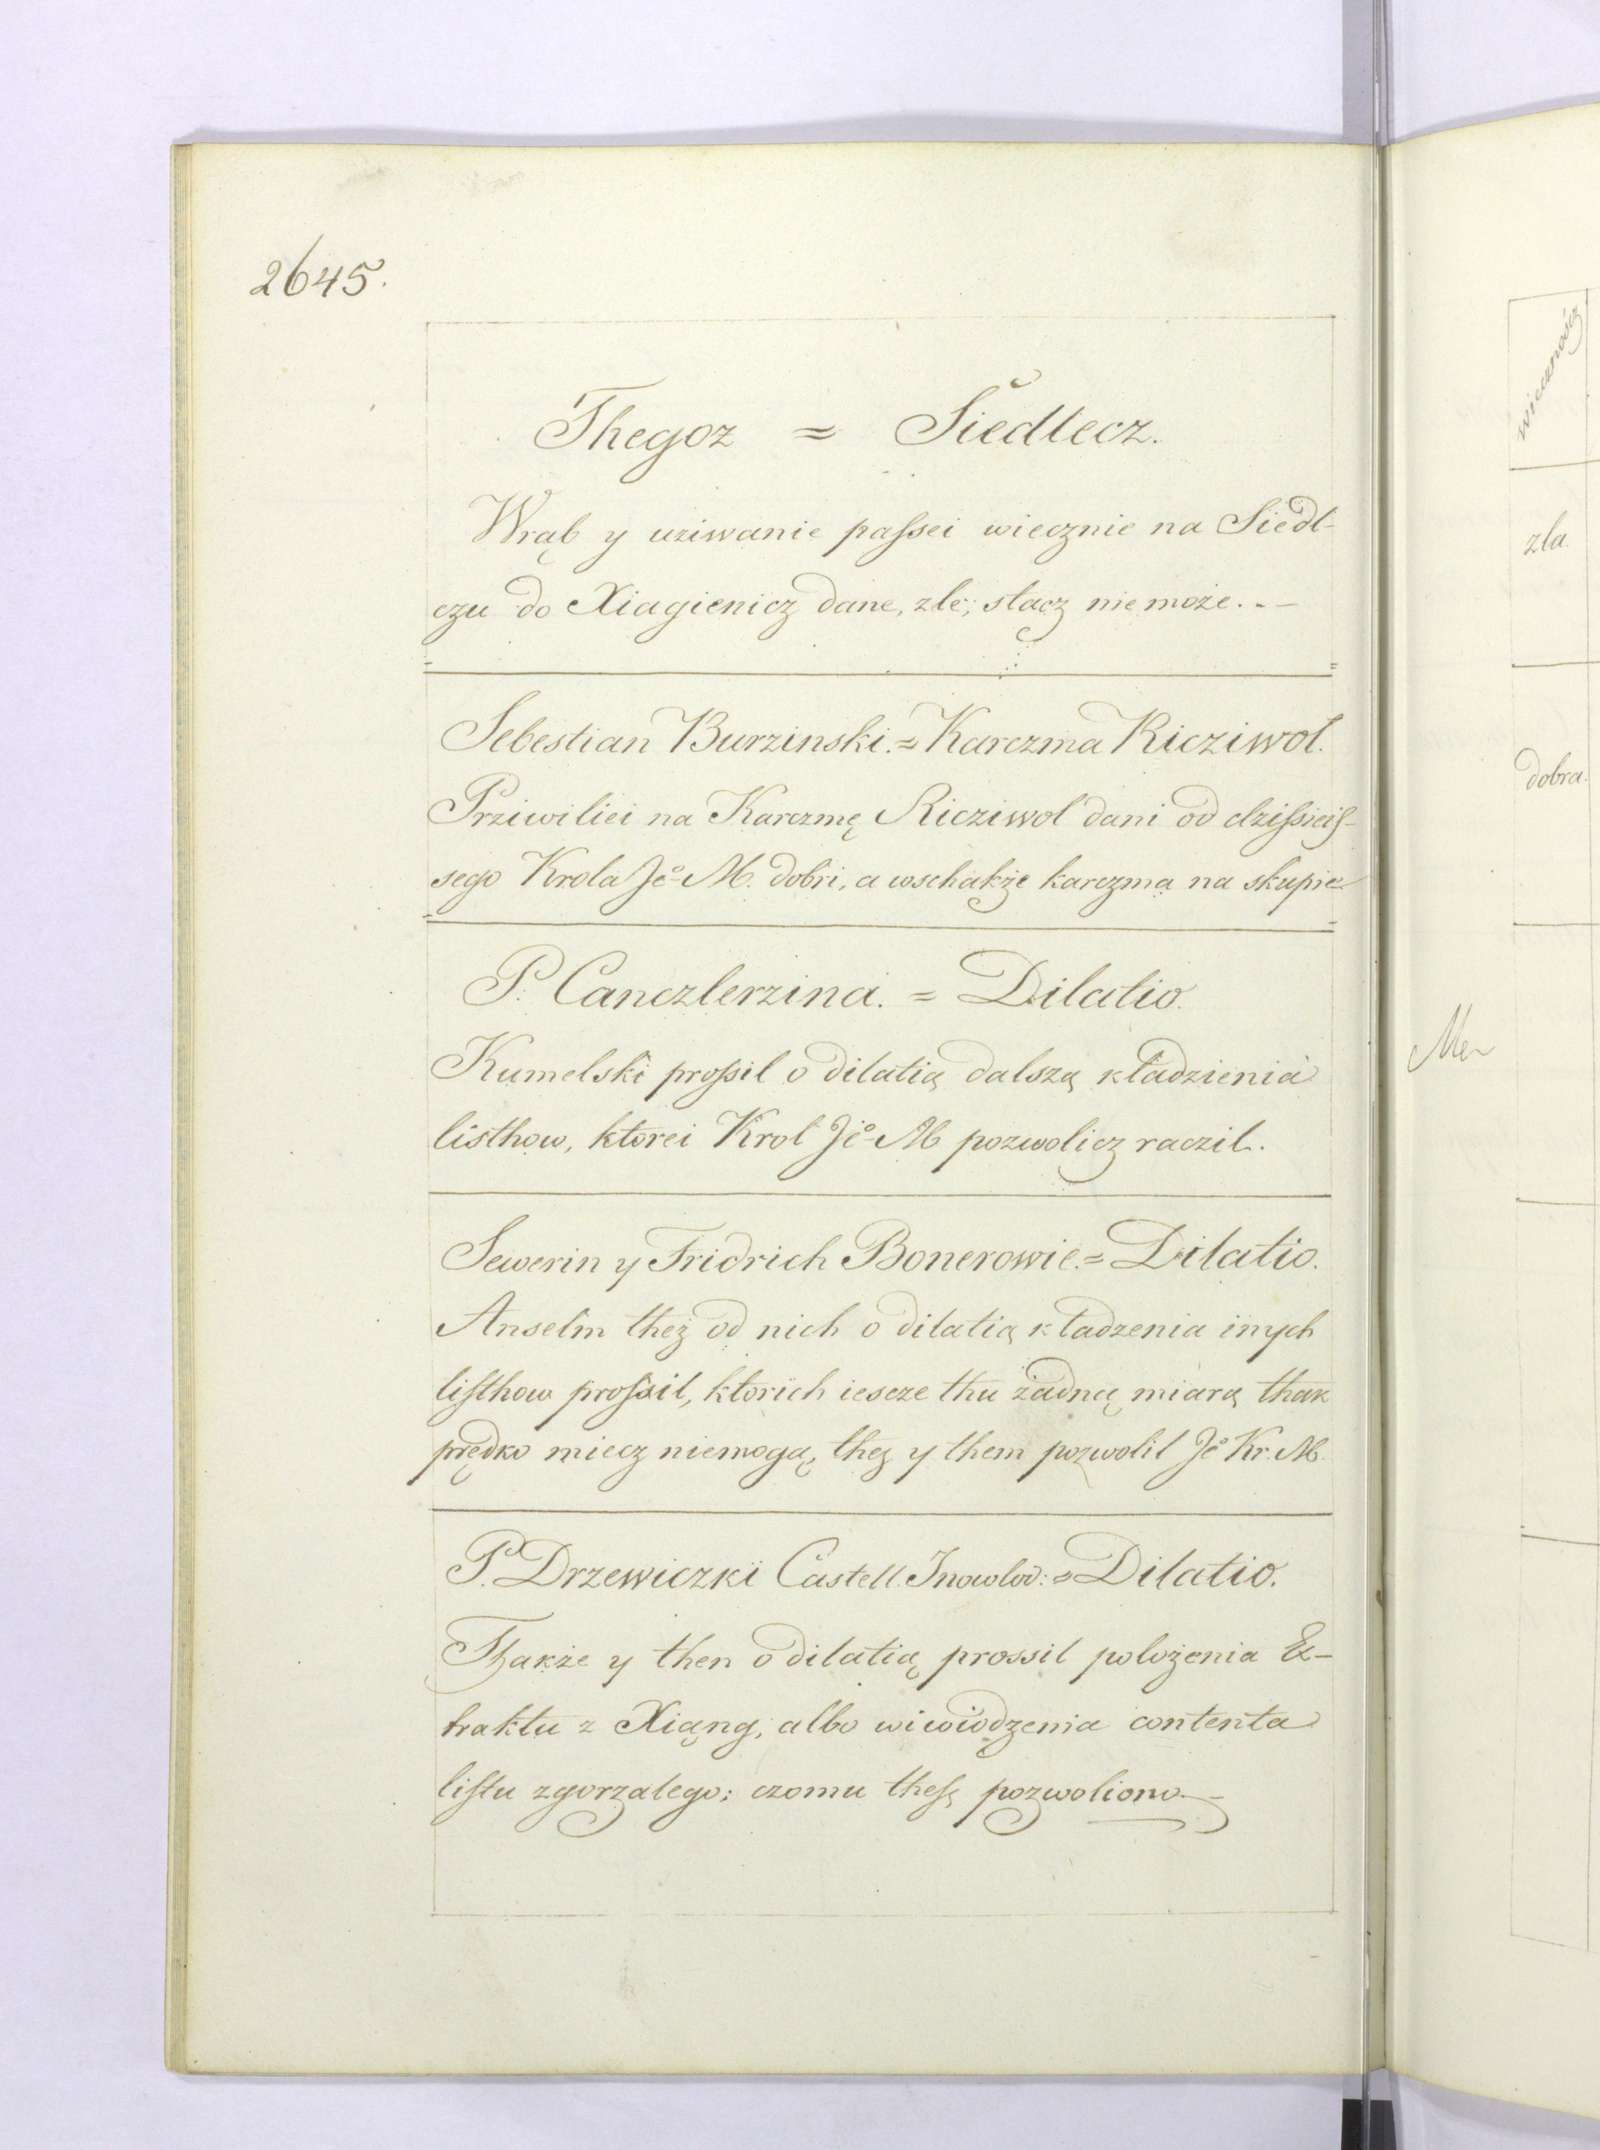 2645.
Thegoz = Siedlecz.
Wrąb y uziwanie passei wiecznie na Siedl-
czu do Xiagienicz dane, zle, stacz nie może. -
Sebestian Burzinski. = Karczma Ricziwol.
Priwiliei na Karczmę Ricziwol dani od dzissieis-
sego Krola Jeº M. dobri, a wschakże karczma na skupie
P. Canczlerzina. = Dilatio.
Kumelski prossil o dilatią dalszą kładzienia
listhow, ktorei Krol Jeº M pozwolicz raczil.
Sewerin y Fridrich Bonerowie. = Dilatio.
Anselm theż od nich o dilatią kładzenia inych
listhow prossil, ktorich iescze thu żadną miarą thak
prędko miecz niemogą, thez y them pozwolil Jeº Kr. M.
P. Drzewiczki Castell. Inowlod: = Dilatio.
Thakże y then o dilatią prossil położenia Ex-
traktu z Xiąng, albo wiwiodzenia contenta
listu zgorzalego; czomu thesz pozwoliono
wieczność
zla
dobra.